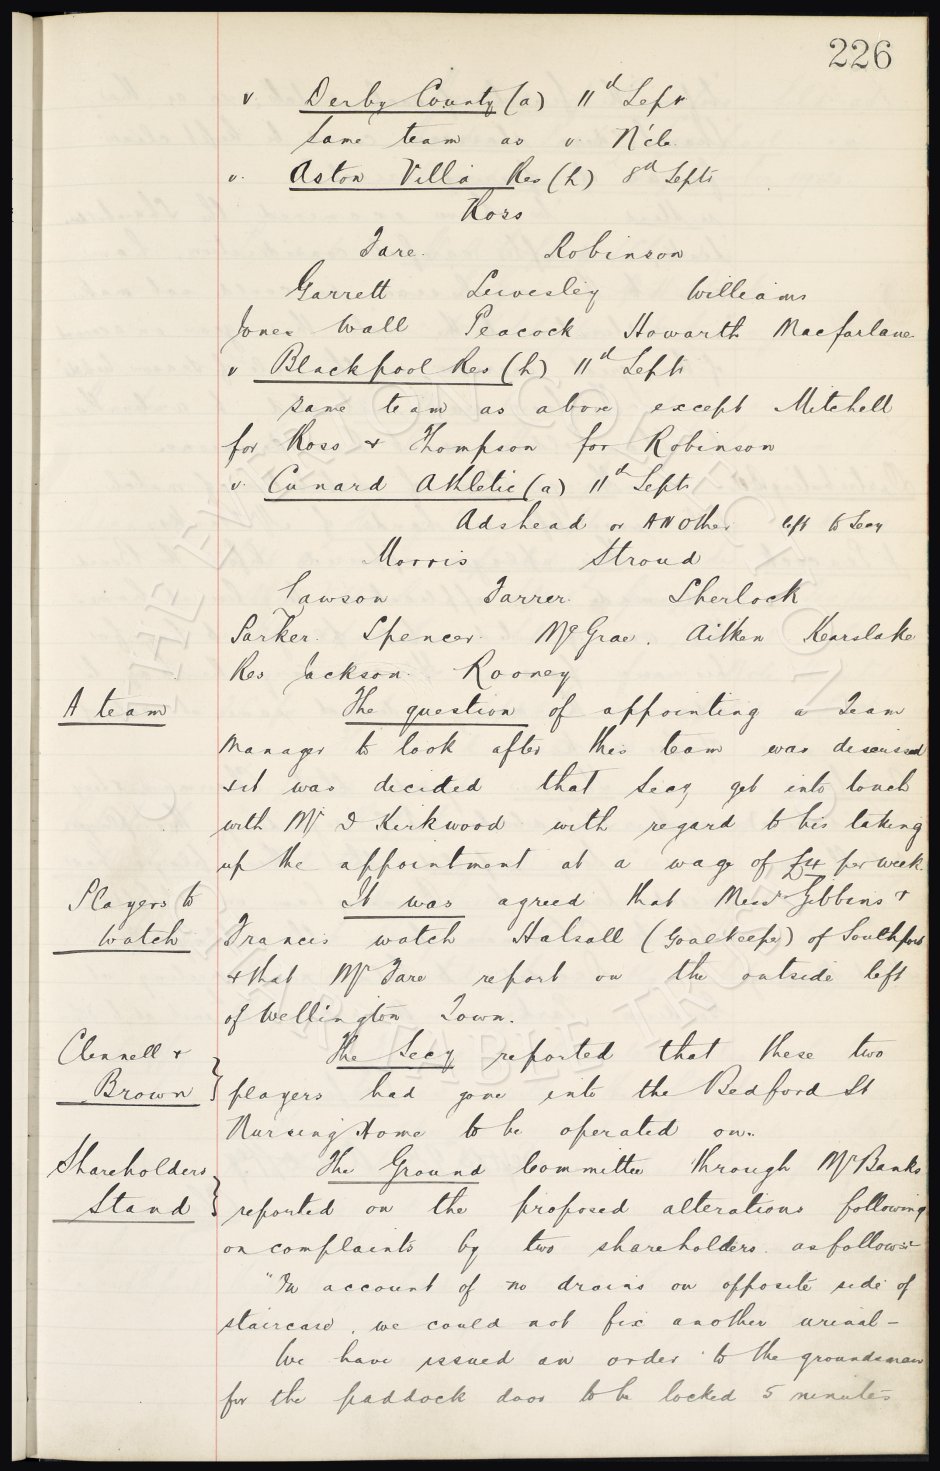 226
v Derby County (a) 11th Sept
Same team as v. N'cle.
v. Aston Villa Res (h) 8th Septr
Ross
Fare. Robinson
Garrett Livesley Williams
Jones Wall Peacock Howarth Macfarlane
v Blackpool Res (h) 11th Septr
same team as above except Mitchell
for Ross & Thompson for Robinson
v. Cunard Athletic (a) 11th Septr
Adshead or ANOther left to Secy
Morris Stroud
Lawson Farrer. Sherlock
Parker. Spencer. McGrae. Aitken Kearslake
Res Jackson. Rooney
A team The question of appointing a Team
Manager to look after this team was discussed
& it was decided that Secy get into touch
with Mr D Kirkwood with regard to his taking
up the appointment at a wage of £4 per week
Players to It was agreed that Messrs Gibbins &
watch Francis watch Halsall (Goalkeeper) of Southport
& that Mr Fare report on the outside left
of Wellington Town.
Clennell & The Secy reported that these two
Brown } players had gone into the Bedford St
Nursing Home to be operated on.
Shareholders The Ground Committee through Mr Banks
Stand } reported on the proposed alterations following
on complaints by two shareholders. as follows:-
"On account of no drains on opposite side of
staircase, we could not fix another urinal -
We have issued an order to the groundsman
for the paddock door to be locked 5 minutes